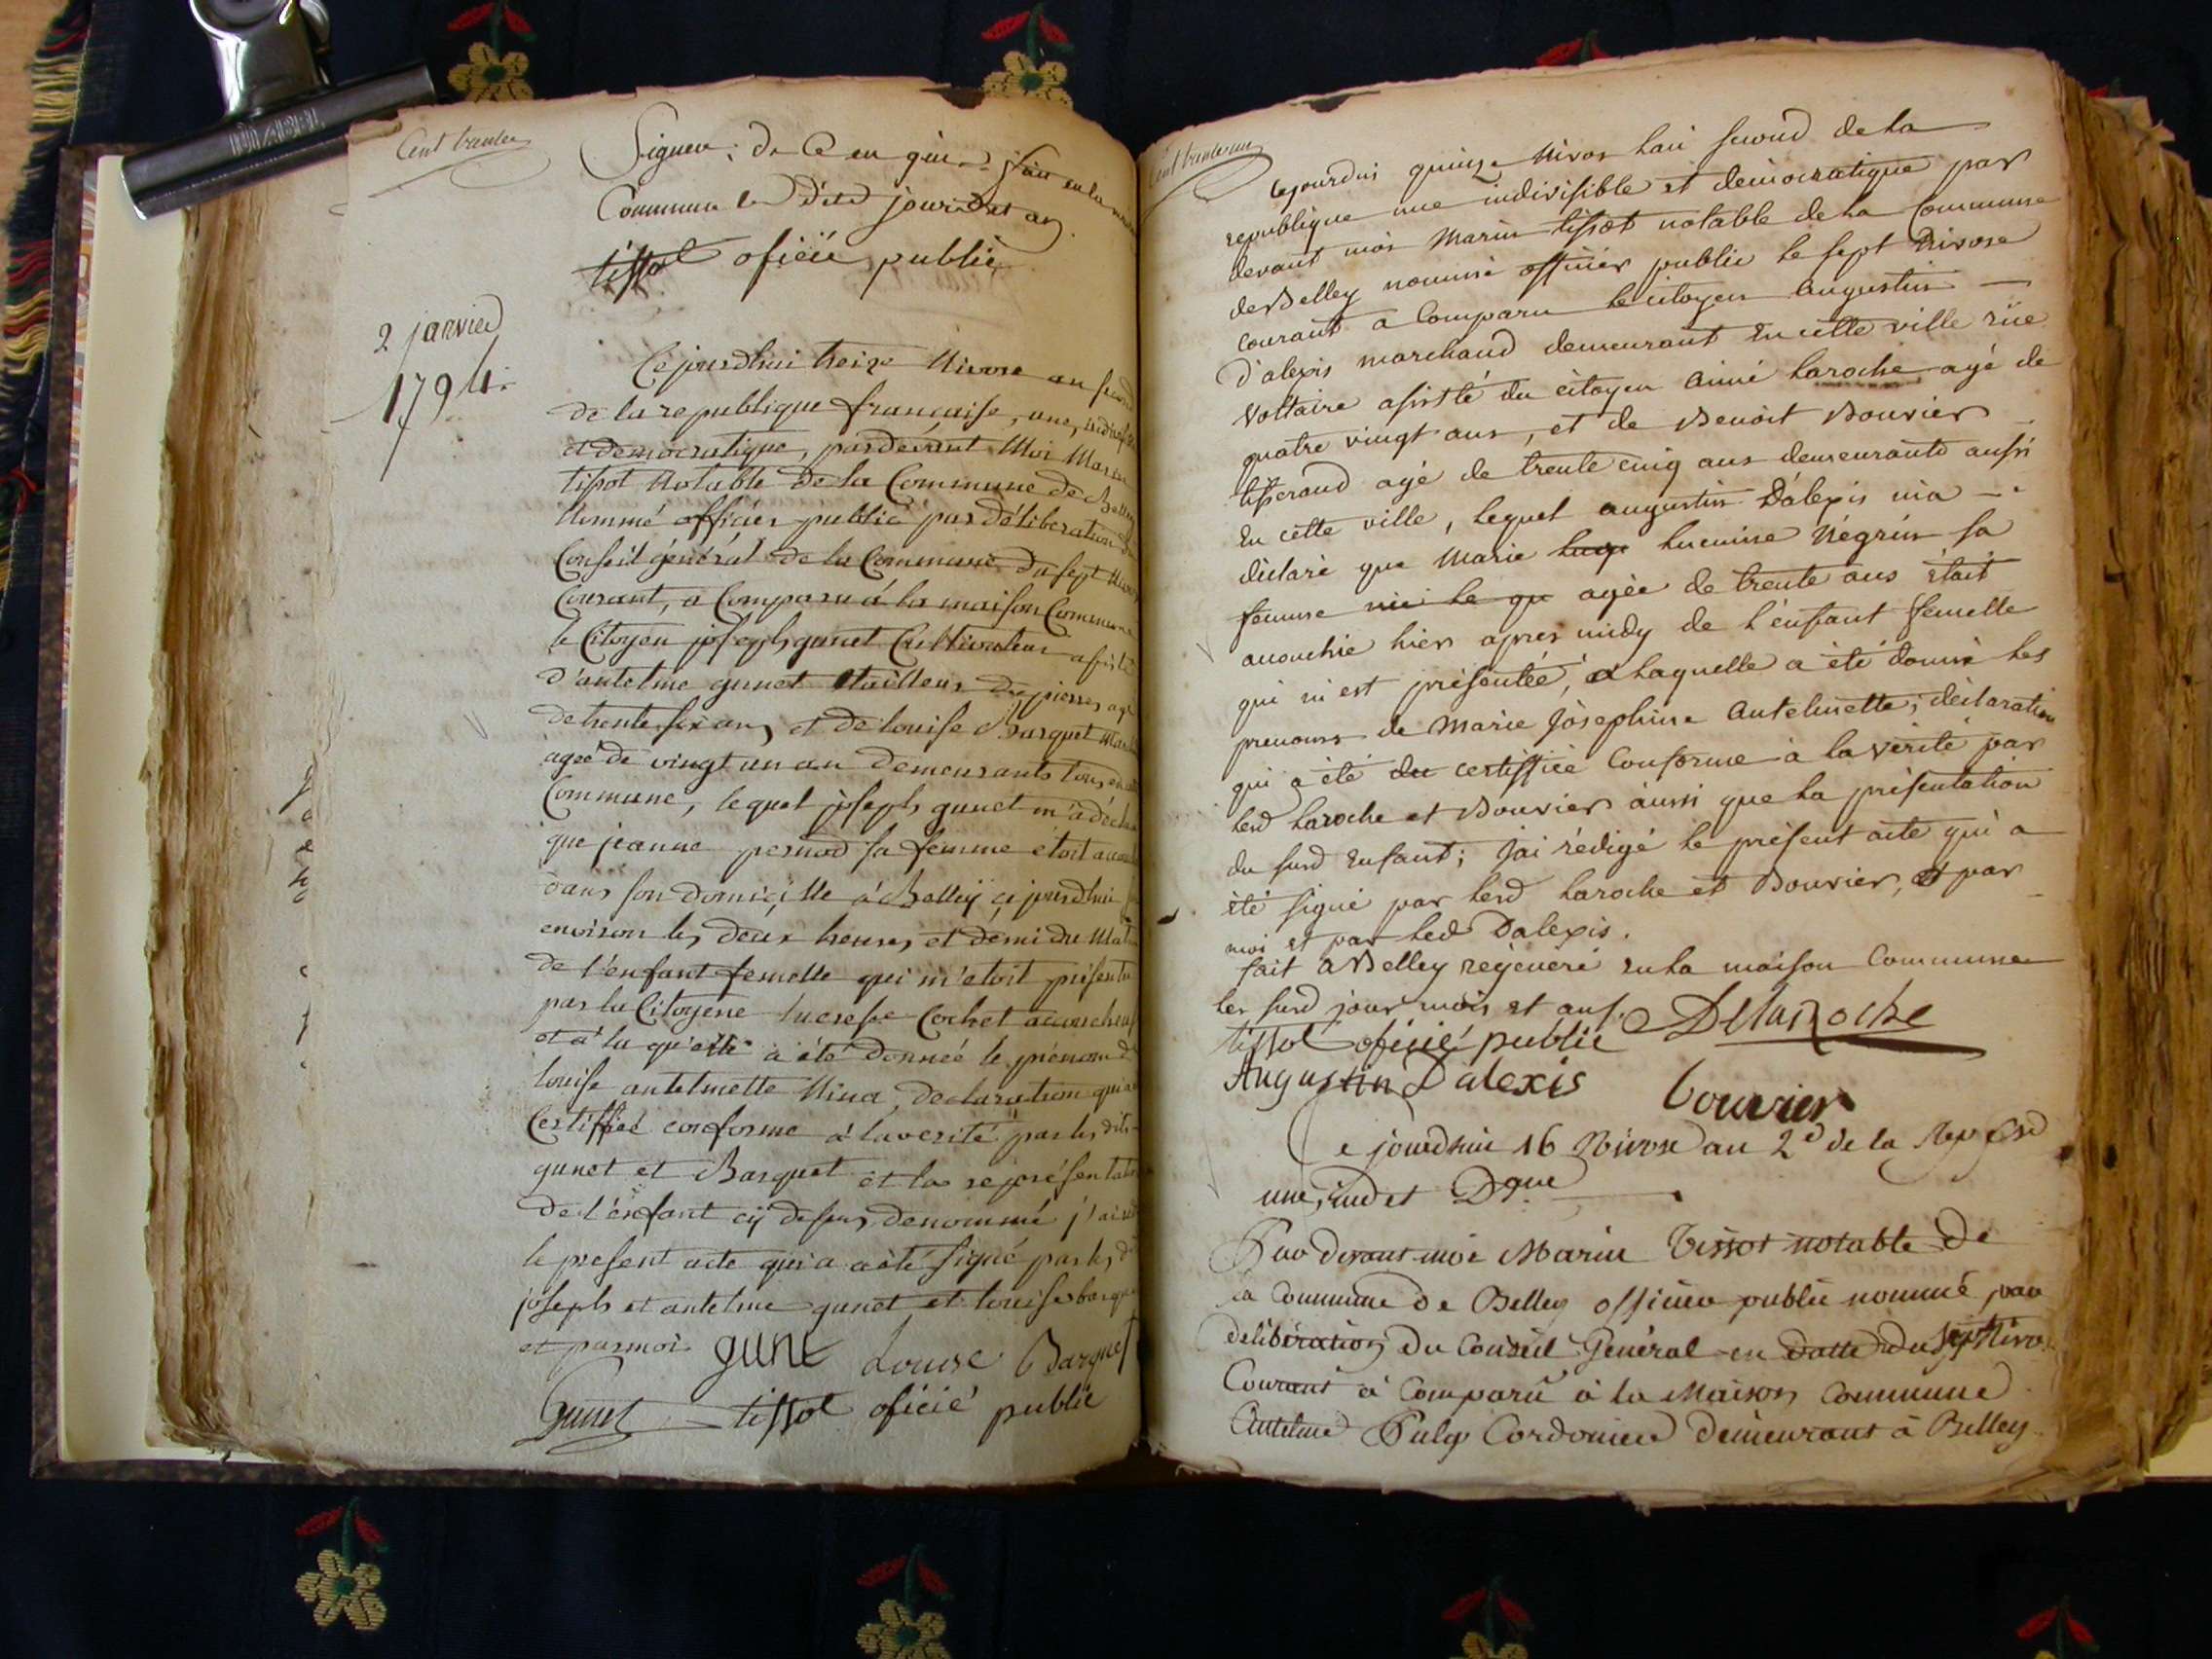 Cent trente
Signer ; de ce enquis fait en la
Commune le dits jour et an
tissot oficié public
2 janvier
1794
Ce jourdhui treize Nivose an second
de la republique française, une, indivisible
et democratique, pardevant Moi Marin
tissot Notable de la Commune de Belley
Nommé officier public par déliberation du
Conseil général de la Commune du sept Nivose
Courant, a Comparu á la maison Commune
le Citoyen joseph gunet Cultivateur assisté
d'antelme gunet tailleur de pierres agé
de trente six ans et de louise Barquet
agée de vingt un an demeurants tous en
Commune, lequel joseph gunet m'a déclaré
que jeanne pernod sa femme étoit accouchée
dans son domicille á Belley ce jourdhui
environ les deux heures et demi du Matin
de l'enfant femelle qui m'etoit présenté
par la Citoyene lucresse Cochet accoucheuse
et á la quelle a été donneé le prénom de
louise antelmette Nina, declaration qui a
Certiffieé conforme á la verité par les dits
gunet et Barquet et la représentation
de l'énfant cy dessus denommé j'ai
le present acte qui a été signé par les dits
joseph et antelme gunet et louise barquet
et par moi gune Louise Barquet
Gunet tissot oficié public
Cent trente un
Cejourdui quinze Nivos lan second de la
republique une indivisible et démocratique par
devant moi Marin tissot notable de la Commune
de Belley nommé officier public le sept Nivose
courant a Comparu le citoyen augustin
D'alexis marchand demeurant en cette ville rüe
voltaire assisté du citoyen aimé laroche agé de
quatre vingt ans, et de Benoit Bouvier
tisserand agé de trente cinq ans demeurants aussi
En cette ville, lequel augustin D'alexis m'a
déclaré que Marie lucrnine Négrin sa
femme agée de trente ans était
acouchée hier apres midy de l'enfant femelle
qui m'est présentée, á laquelle a été donné les
prenoms de Marie Josephine Antelmette ; déclaration
qui a été certiffiée Conforme à la vérité par
lesd laroche et Bouvier ainsi que la présentation
du susd Enfant ; jai rédigé le présent acte qui a
été signé par lesd laroche et Bouvier, et par
moi et par led Dalexis.
fait a Belley régénéré en la maison Commune
les susd jour mois et ans. Delaroche
tissot oficié public
Augustin Dalexis bouvier
Ce jourdhui 16 Nivose an 2d de la Rep
une, ind et Dque
Par devant moi Marin Tissot notable de
la Commune de Belley officier public nommé par
deliberation du Conseil Général en datte du sept Nivose
Courant à comparû à la Maison Commune
Antelme Pulq Cordonier demeurant à Belley